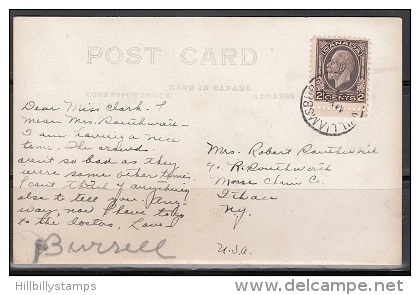 POST CARD
MADE IN CANADA
CORRESPONDENCE
ADDRESS
CANADA
2 CENTS 2
WILLIAMSBURG
Dear Miss Clark - I
mean Mrs. Southworth -
I am having a nice
time. The crowds
aren't so bad as they
were some other times.
I can't think of anything
else to tell you. Any
way, now I have to go
to the doctors, Love -
Bursell
Mrs. Robert Southworth
c/o R. Southworth
Morse Chain Co.
Ithaca
Ny.
U.S.A.
Hillbillystamps
delcampe.net